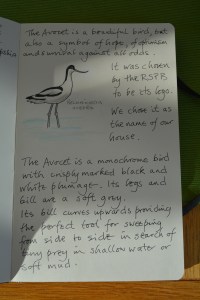 The Avocet is a beautiful bird, but
also a symbol of hope, of optimism
and survival against all odds.
It was chosen
by the RSPB
to be its logo.
We chose it as
the name of our
house.
The Avocet is a monochrome bird
with crisply marked black and
white plumage. Its legs and
bill are a soft grey.
Its bill curves upwards providing
the perfect tool for sweeping
from side to side in search of
tiny prey in shallow water or
soft mud.